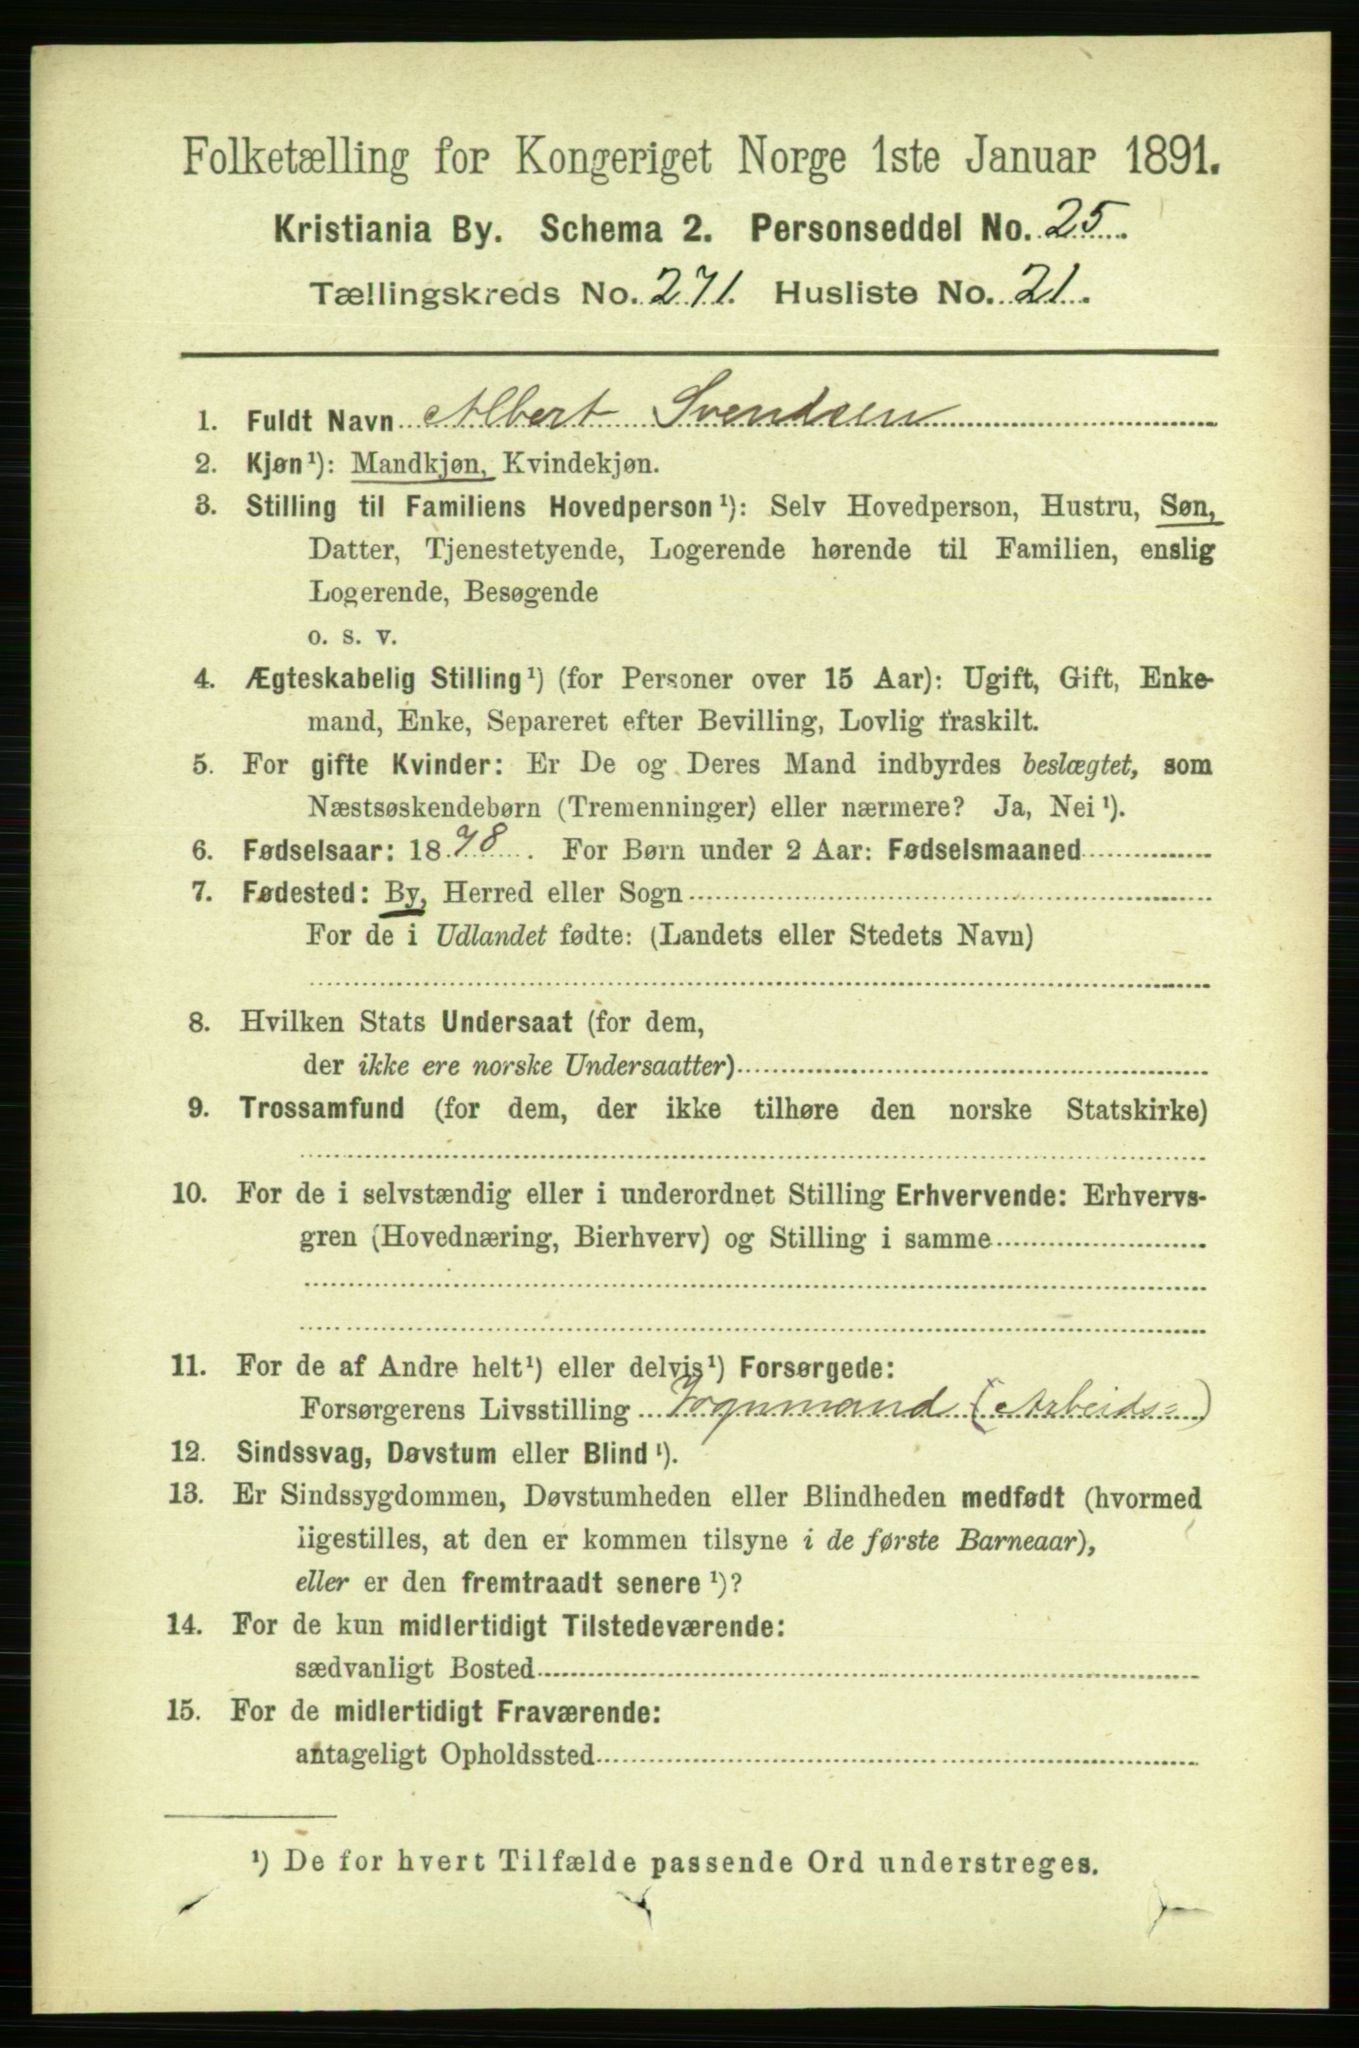 Folketælling for Kongeriget Norge 1ste Januar 1891.
Kristiania By. Schema 2. Personseddel No. 25.
Tællingskreds No. 271. Husliste No. 21.
1. Fuldt Navn Albert Svendsen
2. Kjøn¹): Mandkjøn, Kvindekjøn.
3. Stilling til Familiens Hovedperson¹): Selv Hovedperson, Hustru, Søn,
Datter, Tjenestetyende, Logerende hørende til Familien, enslig
Logerende, Besøgende
o. s. v.
4. Ægteskabelig Stilling¹) (for Personer over 15 Aar): Ugift, Gift, Enke-
mand, Enke, Separeret efter Bevilling, Lovlig fraskilt.
5. For gifte Kvinder: Er De og Deres Mand indbyrdes beslægtet, som
Næstsøskendebørn (Tremenninger) eller nærmere? Ja, Nei¹).
6. Fødselsaar: 1878. For Børn under 2 Aar: Fødselsmaaned
7. Fødested: By, Herred eller Sogn
For de i Udlandet fødte: (Landets eller Stedets Navn)
8. Hvilken Stats Undersaat (for dem,
der ikke ere norske Undersaatter)
9. Trossamfund (for dem, der ikke tilhøre den norske Statskirke)
10. For de i selvstændig eller i underordnet Stilling Erhvervende: Erhvervs-
gren (Hovednæring, Bierhverv) og Stilling i samme
11. For de af Andre helt¹) eller delvis¹) Forsørgede:
Forsørgerens Livsstilling Vognmand (Arbeids=)
12. Sindssvag, Døvstum eller Blind¹).
13. Er Sindssygdommen, Døvstumheden eller Blindheden medfødt (hvormed
ligestilles, at den er kommen tilsyne i de første Barneaar),
eller er den fremtraadt senere¹)?
14. For de kun midlertidigt Tilstedeværende:
sædvanligt Bosted
15. For de midlertidigt Fraværende:
antageligt Opholdssted
¹) De for hvert Tilfælde passende Ord understreges.